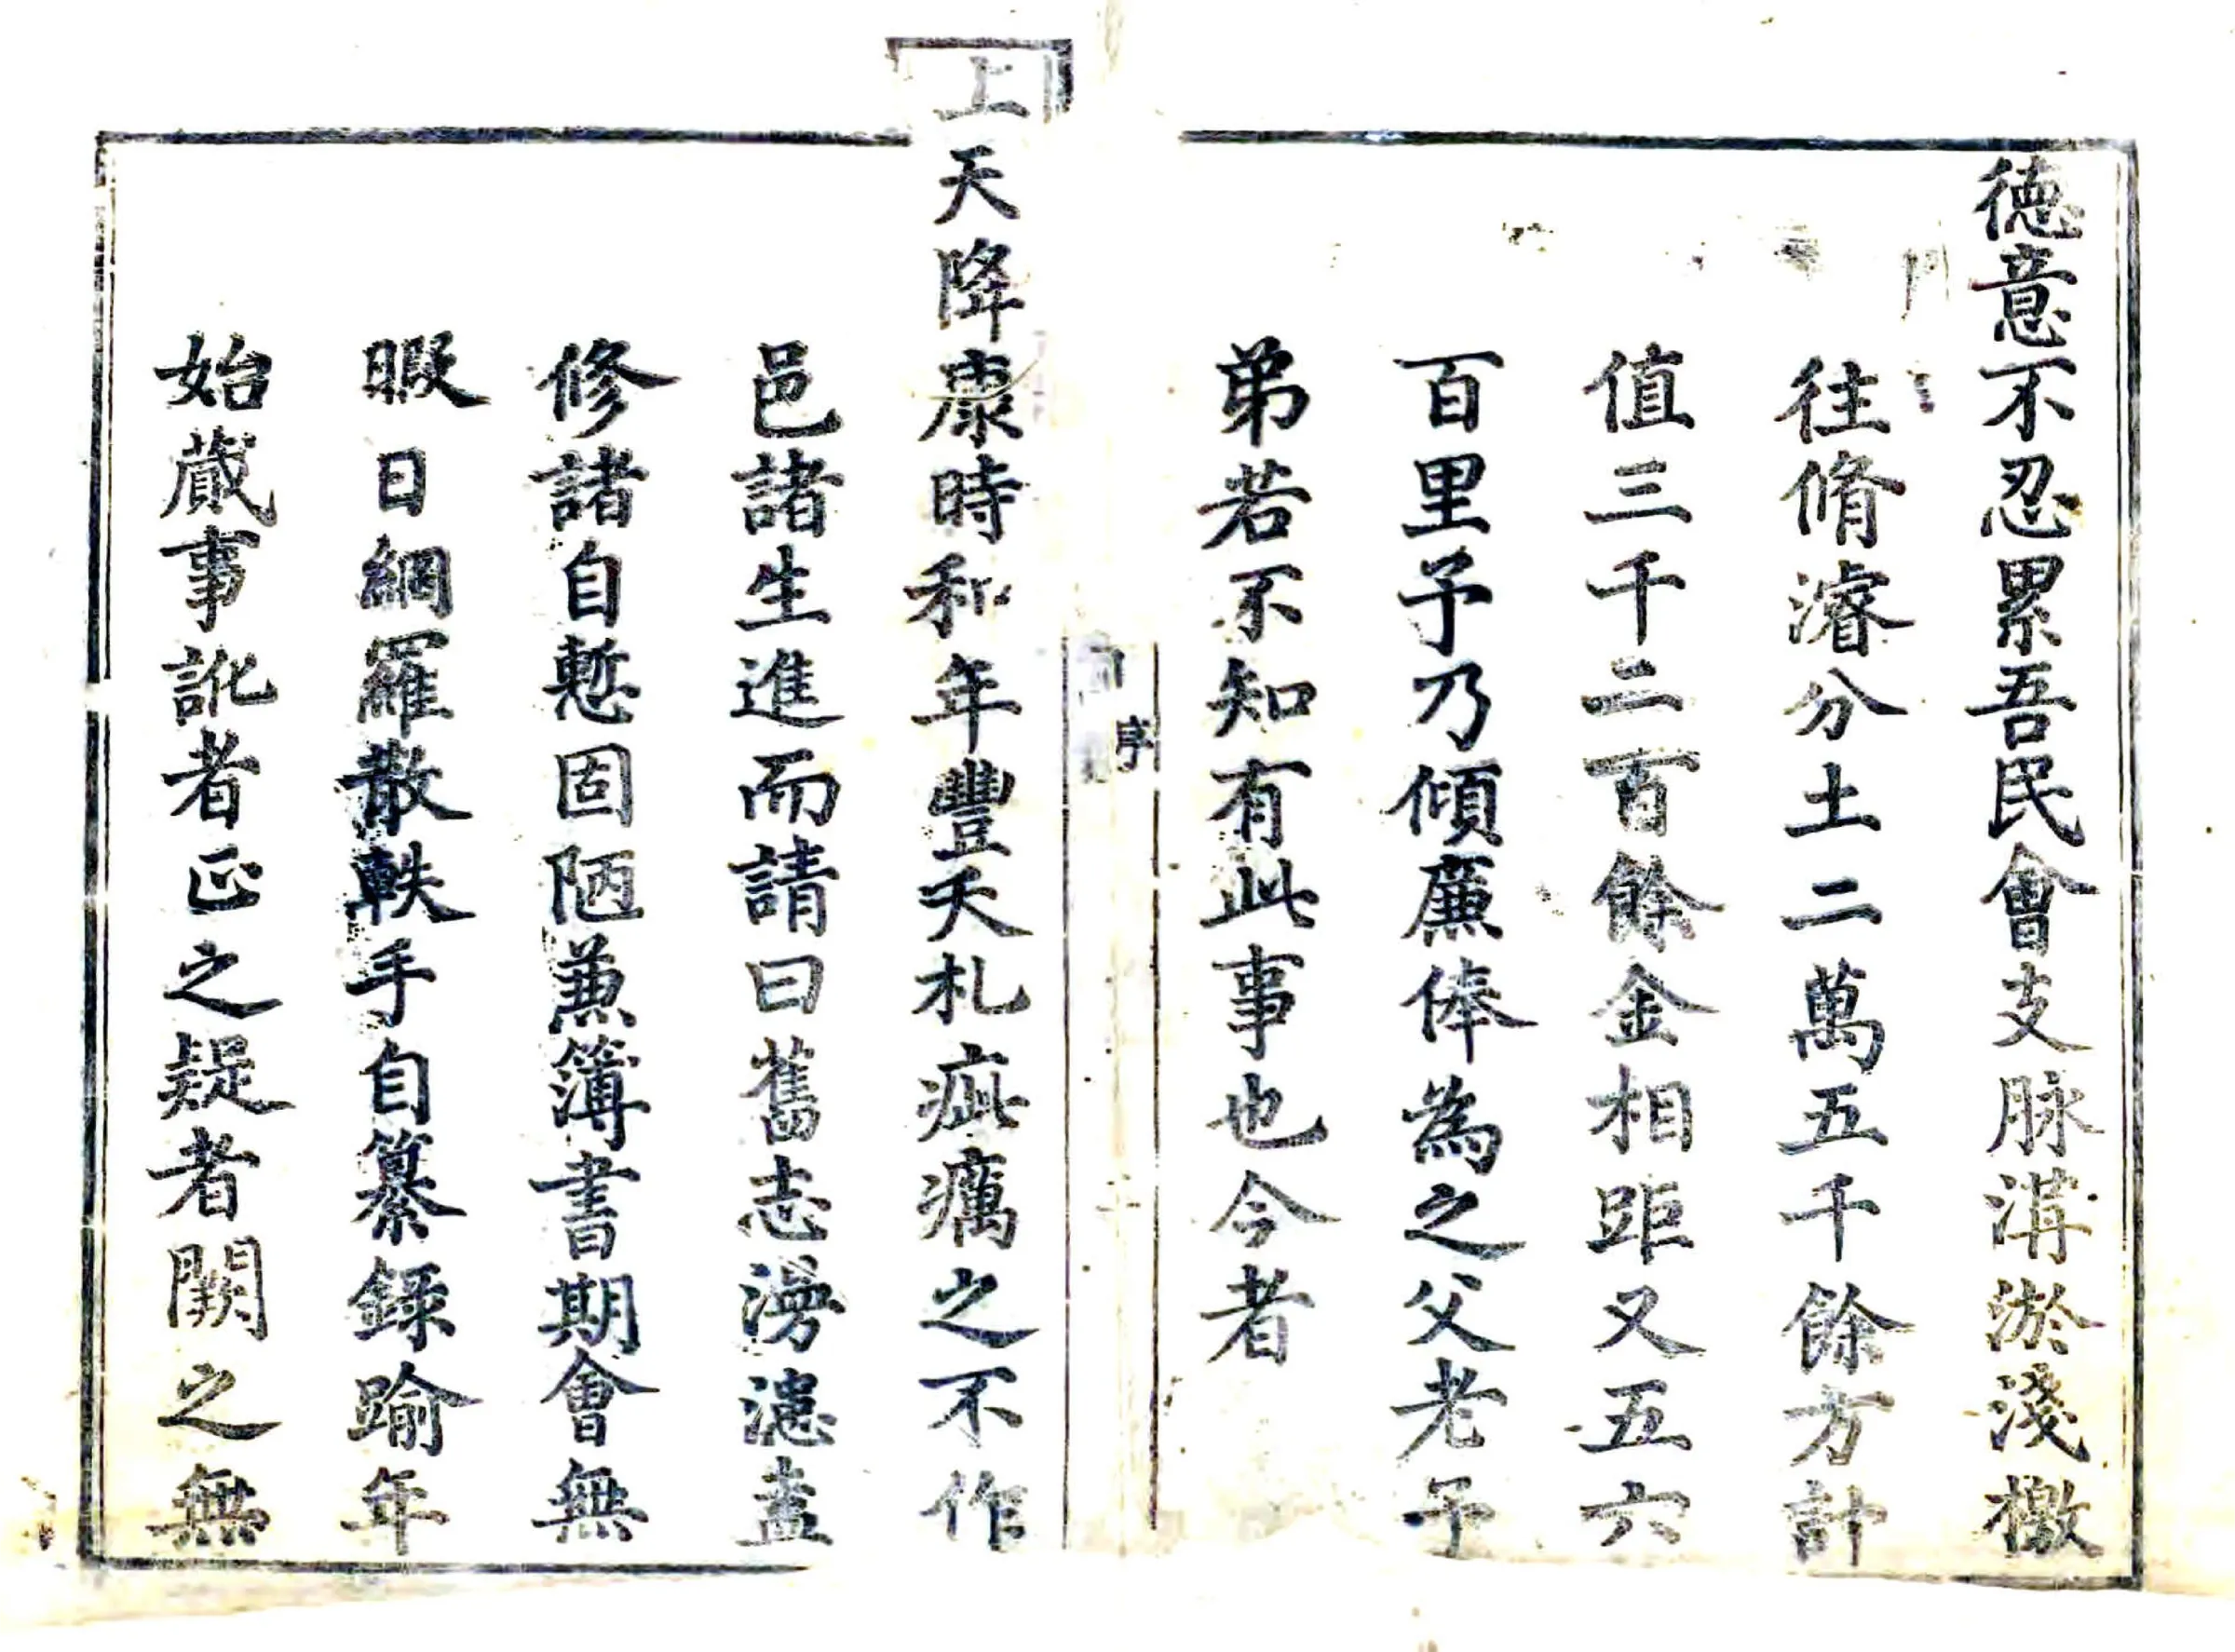 德意不忍累吾民會支脉溝淤淺檄
往脩濬分土二萬五千餘方計
值三千二百餘金相距又五六
百里予乃傾廉俸為之父老子
弟若不知有此事也今者
序
上天降康時和年豐夭札疵癘之不作
邑諸生進而請曰舊志漫漶盍
修諸自慙固陋蒹簿書期會無
暇日網羅散軼手自纂録踰年
始蕆事訛者正之疑者闕之無